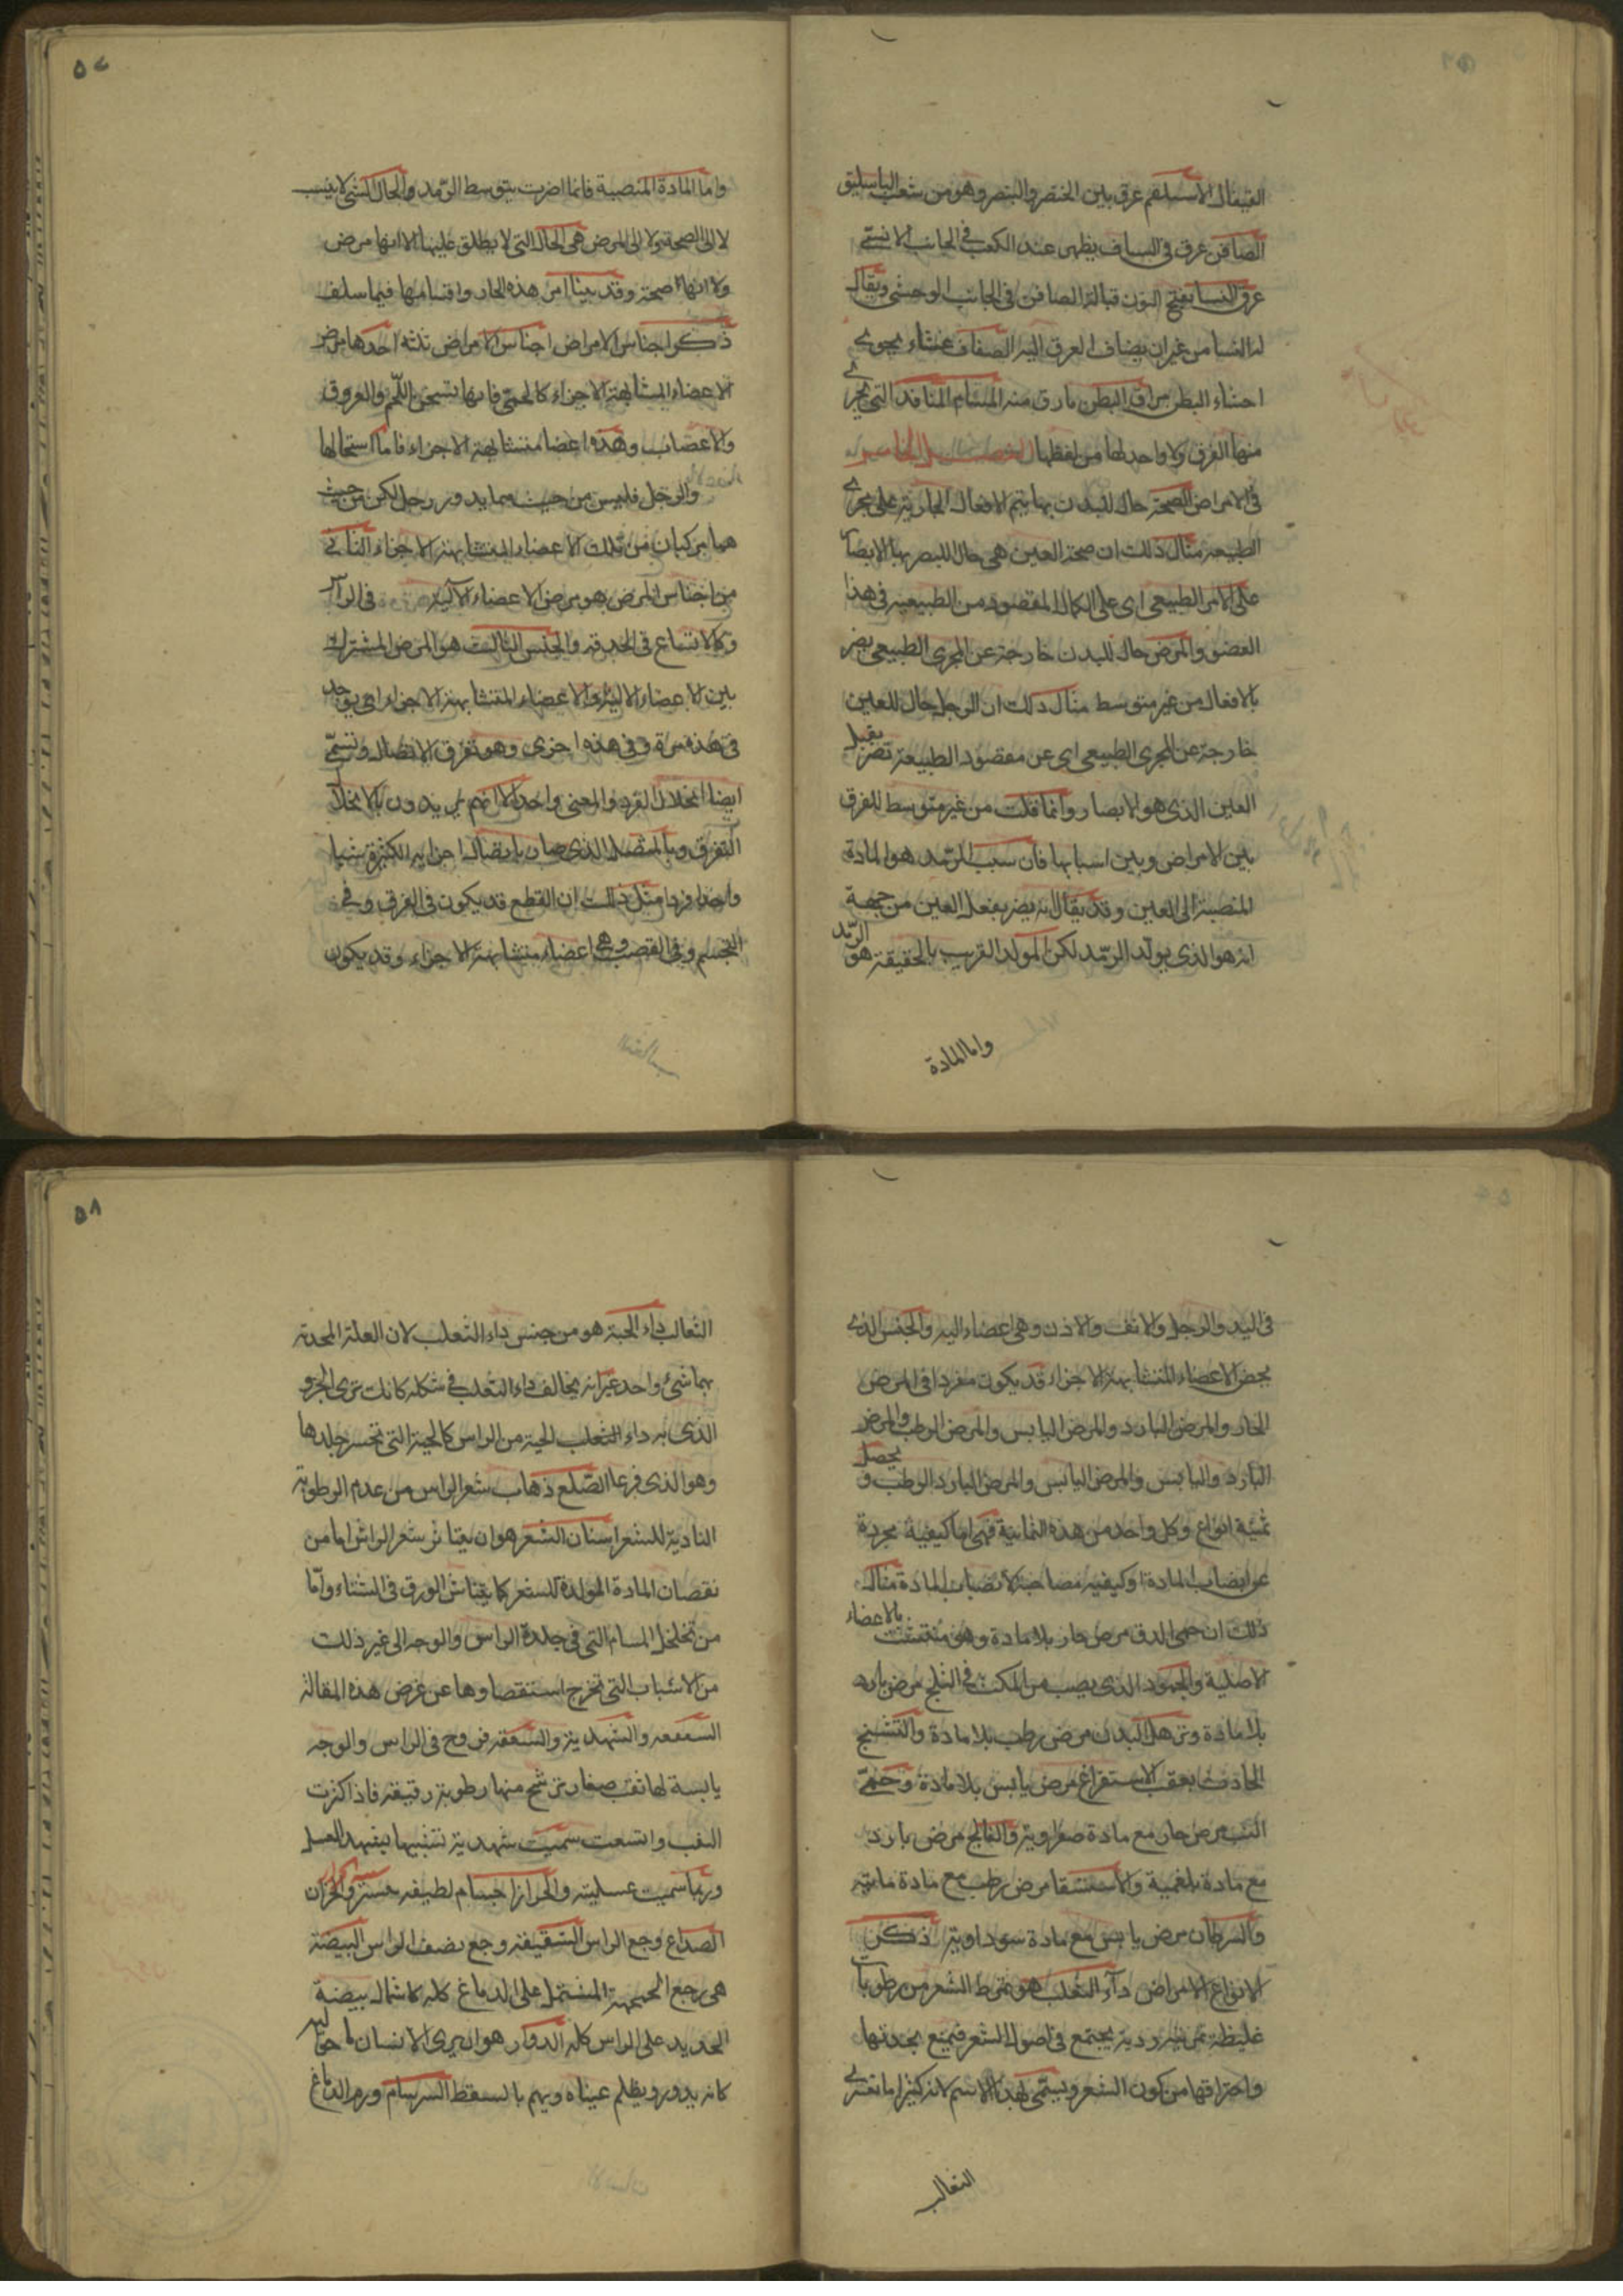 القيفال الاسيلم عرق بين الخنصر والبنصر وهو من شعب الباسليق
الصافن عرق في الساق يظهر عند الكعب في الجانب الانسى
عرق النسا بفتح النون قبالة الصافن في الجانب الوحشى ويقال
له النسا من غير ان يضاف العرق اليه الصفاق غشاء يحوى
احشاء البطن مراق البطن مارق منه المسام المنافذ التى يجرى
منها العرق ولا واحد لها من لفظها الفصل الخامس
في الامراض الصحة حال للبدن بها يتم الافعال الجارية على مجرى
الطبيعه مثال ذلك ان صحة العين هى حال للبصر بها الابصار
على الامر الطبيعى اى على الكمال المقصود من الطبيعيه في هذا
العضو والمرض حال للبدن خارجة عن المجرى الطبيعى يضر
بالافعال من غير متوسط مثال ذلك ان الرمد حال للعين
خارجة عن المجرى الطبيعى اى عن مقصود الطبيعة تضر بفعل
العين الذى هو الابصار وانما قلت من غير متوسط للفرق
بين الامراض وبين اسبابها فان سبب الرمد هو المادة
المنصبة الى العين وقد يقال انه يضر بفعل العين من جهة
انه هو الذى يولد الرمد لكن المولد القريب بالحقيقة هو الرمد
واما المادة
٥٧
واما المادة المنصبة فانما اضرت بتوسط الرمد والحال التى لا ينسب
لا الى الصحة ولا الى المرض هى الحال التى لا يطلق عليها الا انها مرض
ولا انها صحة وقد بينا امر هذه الحال واقسامها فيما سلف
ذكر اجناس الامراض اجناس الامراض ثلثه احدها مرض
الاعضاء المتشابهة الاجزاء كالحمى فانها تسخن اللحم والعروق
والاعصاب وهذه اعضا متشابهة الاجزاء فاما استحالها
والرجل فليس من حيث هما يد ورجل لكن من حيث
هما مركبان من تلك الاعضاء المتشابهة الاجزاء الثانى
من اجناس المرض هو مرض الاعضاء الآلية في الراس
وكالاتساع في الحدقه والجنس الثالث هو المرض المشترك
بين الاعضاء الالية والاعضاء المتشابهة الاجزاء اى يوجد
في هذه مرة وفي هذه اخرى وهو تفرق الاتصال وتسمى
ايضا انحلال الفرد والمعنى واحد الا انهم يريدون بالانحلال
التفرق وبالمتصل الذى صار باتصال اجزايه الكثيرة شيئا
واحدا فردا مثل ذلك ان القطع قد يكون في العرق وفي
اللحم وفي العصب وهى اعضاء متشابهة الاجزاء وقد يكون
في اليد والرجل والانف والاذن وهى اعضاء اليه والجنس الذى
يخص الاعضاء المتشابهة الاجزاء قد يكون مفردا في المرض
الحار والمرض البارد والمرض اليابس والمرض الرطب والمرض
البارد واليابس والمرض اليابس والمرض البارد الرطب ويحصل
ثمنية انواع وكل واحد من هذه الثمانية فهى اما كيفية مجردة
عن انصاب المادة او كيفيه مصاحبة لانصباب المادة مثال
ذلك ان حمى الدق مرض حار بلا مادة وهو متشبث بالاعضاء
الاصلية والجمود الذى يصيب من المكث في الثلج مرض بارد
بلا مادة وترهل البدن مرض رطب بلا مادة والتشنج
الحادث بعقب الاستفراغ مرض يابس بلا مادة وحمى
الغب مرض حار مع مادة صفراوية والفالج مرض بارد
مع مادة بلغمية والاستسقا مرض رطب مع مادة مائيه
والسرطان مرض يابس مع مادة سوداوية ذكر
الانواع الامراض داء الثعلب هو تمرط الشعر من رطوبات
غليظة ردية يجتمع في اصول الشعر فيمنع بحدتها
واحتراقها من كون الشعر ويسمى بهذا الاسم لانه كثيرا ما تعترى
الثعالب
٥٨
الثعالب داء الحية هو من جنس داء الثعلب لان العلة المحدثة
بهما شئ واحد غير انه يخالف داء الثعلب في شكله كانك ترى الجزو
الذى به داء الثعلب لحية من الراس كالحية التى تحسر جلدها
وهو الذى فرعا الصلع ذهاب شعر الراس من عدم الرطوبة
النادية للشعر اسنان الشعر هو ان يتناثر شعر الراس اما من
نقصان المادة المولدة للشعر كما يتناثر الورق في الشتاء واما
من تخلخل المسام التى في جلدة الراس والوجه الى غير ذلك
من الاسباب التى تخرج استقصاوها عن غرض هذه المقالة
السعفه والشهدية والسعفة قروح في الراس والوجه
يابسة لها ثقب صغار ترشح منها رطوبة رقيقة فاذا كثرت
الثقب واتسعت سميت شهدية تشبيها بشهد العسل
وربما سميت عسلية والحزاز اجسام لطيفه
الصداع وجع الراس الشقيقه وجع نصف الراس البيضة
هى وجع الجمجمة المشتمل على الدماغ كله كاشمال بيضة
الحديد على الراس كله الدوار هو ان يرى الانسان ما حواليه
كانه يدور ويظلم عيناه ويهم بالسقط السرسام ورم الدماغ